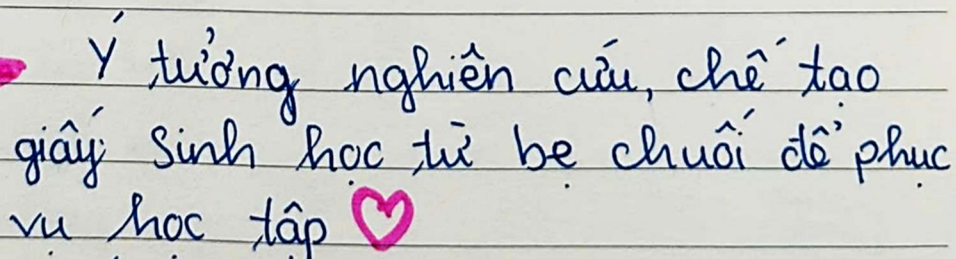 Ý tưởng nghiên cứu, chế tạo
giấy sinh học từ bẹ chuối để phục
vụ học tập